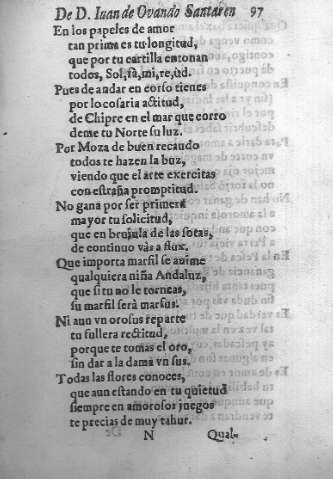 De D. Iuan de Ovando Santaren 97
En los papeles de amor
tan prima es tu longitud,
que por tu cartilla entonan
todos, Sol, fà, mi, re, ud.
Pues de andar en corso tienes
por lo cosaria actitud,
de Chipre en el mar que corro
deme tu Norte su luz.
Por Moza de buen recaudo
todos te hazen la buz,
viendo que el arte exercitas
con estraña promptitud.
No gana por ser primera
mayor tu solicitud,
que en brujula de las sotas,
de continuo vàs a flux.
Que importa marfil se anime
qualquiera niña Andaluz,
que si tu no le torneas,
su marfil serà marfus.
Ni aun vn orosus reparte
tu fullera rectitud,
porque te tomas el oro,
sin dar a la dama vn sus.
Todas las flores conoces,
que aun estando en tu quietud
siempre en amorosos juegos
te precias de muy tahur.
N Qual-